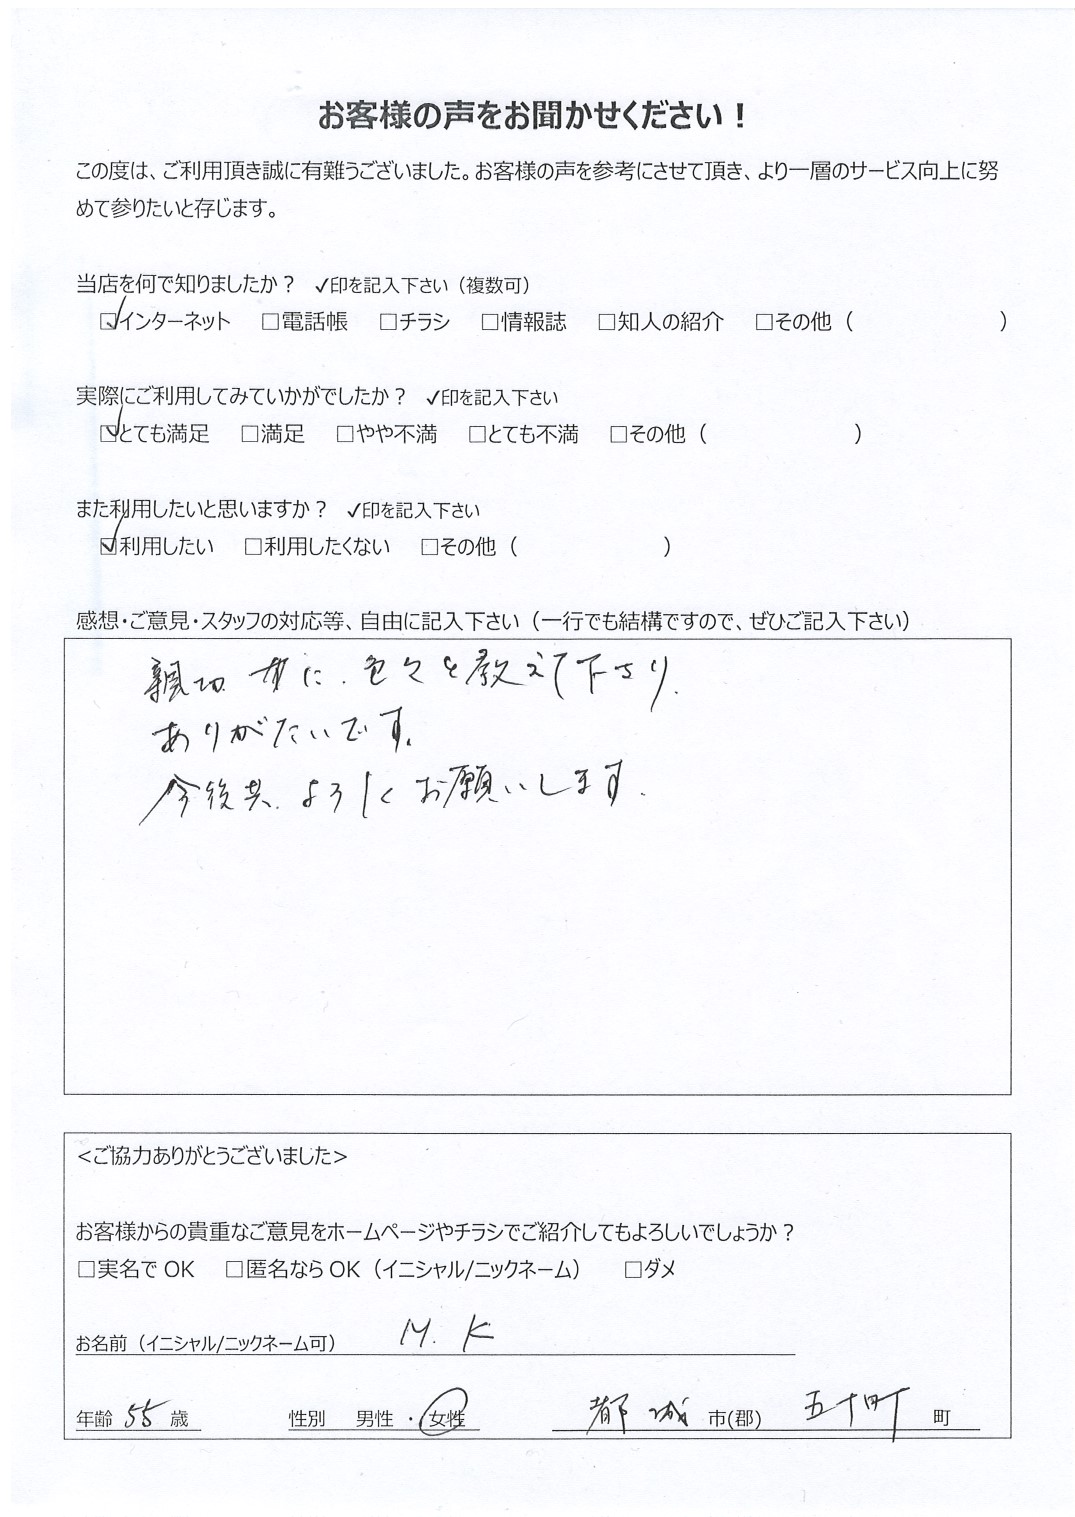 お客様の声をお聞かせください！
この度は、ご利用頂き誠に有難うございました。お客様の声を参考にさせて頂き、より一層のサービス向上に努
めて参りたいと存じます。
当店を何で知りましたか？ ✓印を記入下さい（複数可）
☑インターネット □電話帳 □チラシ □情報誌 □知人の紹介 □その他（ ）
実際にご利用してみていかがでしたか？ ✓印を記入下さい
☑とても満足 □満足 □やや不満 □とても不満 □その他（ ）
また利用したいと思いますか？ ✓印を記入下さい
☑利用したい □利用したくない □その他（ ）
感想・ご意見・スタッフの対応等、自由に記入下さい（一行でも結構ですので、ぜひご記入下さい）
親切 に、色々と教えて下さり、
ありがたいです。
今後共、よろしくお願いします。
<ご協力ありがとうございました>
お客様からの貴重なご意見をホームページやチラシでご紹介してもよろしいでしょうか？
□実名で OK □匿名なら OK（イニシャル/ニックネーム） □ダメ
お名前（イニシャル/ニックネーム可） M. K
年齢 55 歳 性別 男性 ・ 女性 都城 市(郡) 五十町 町